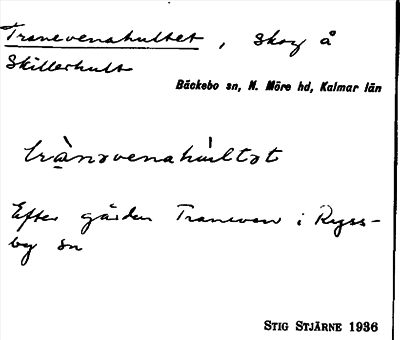 Tranevenahultet, skog å
Skillerhult
Bäckebo sn, N. Möre hd, Kalmar län
trànəvenahùltət
Efter gården Traneven i Ryss-
by sn
STIG STJÄRNE 1936